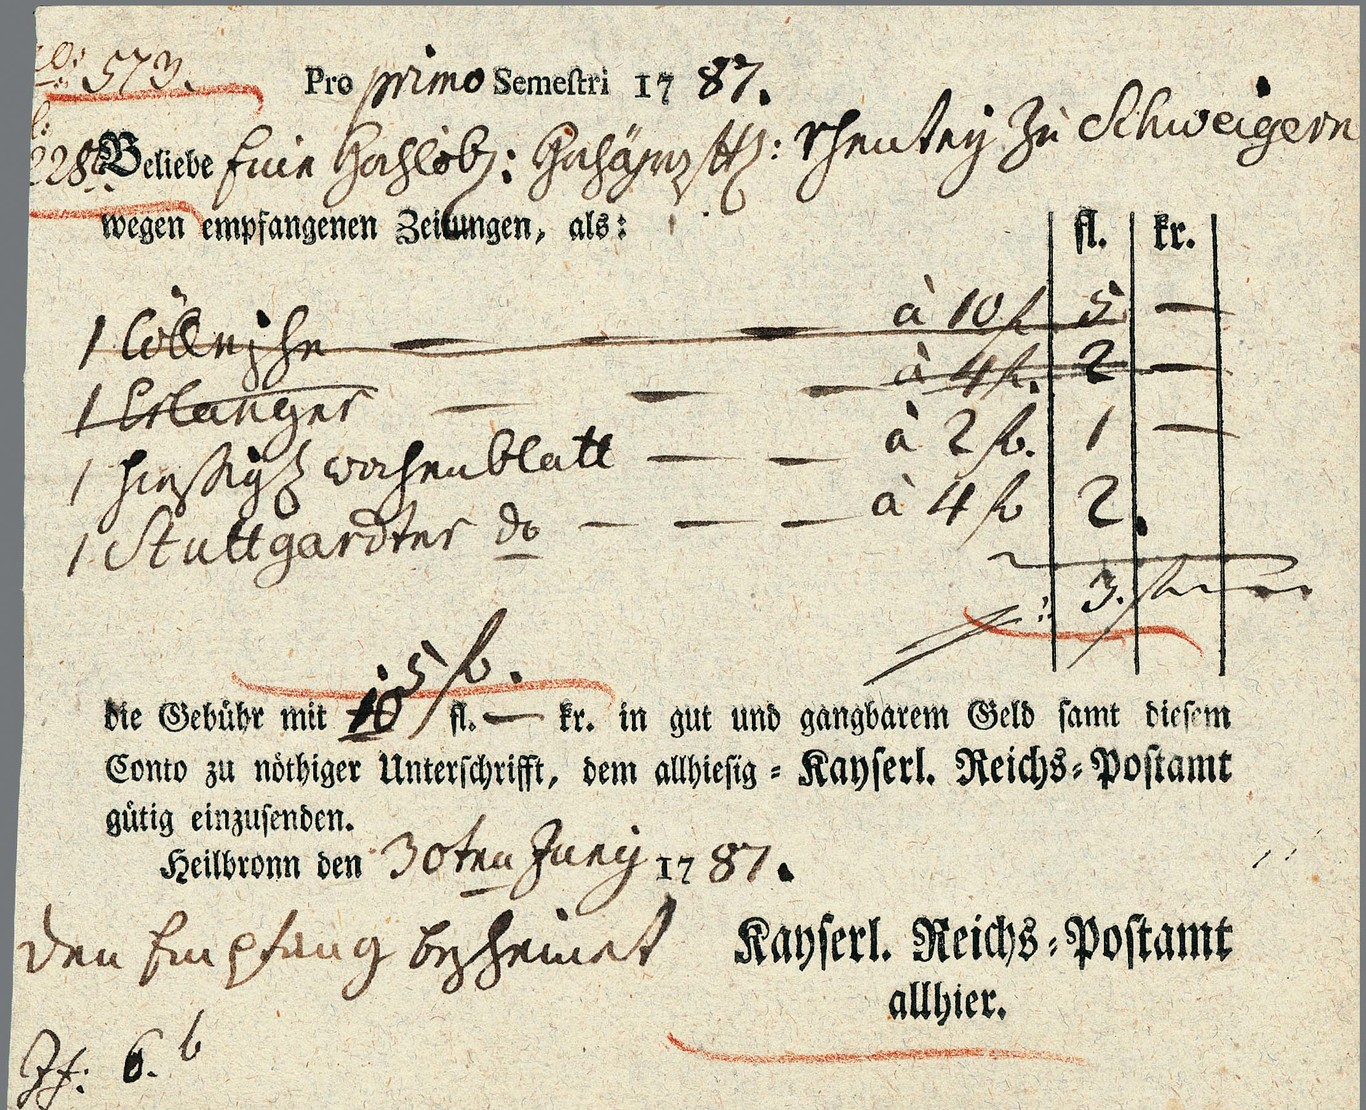 573.
Pro primo Semestri 1787.
228
Beliebe eine Hochlöbl: rhentey zu Schweigern
wegen empfangenen Zeitungen, als:
fl. kr.
1 Cöllnische — — — à 10 fl. 5 —
1 Erlanger — — — à 4 fl. 2 —
1 hiesiges wochenblatt — — à 2 fl. 1 —
1 Stuttgardter do — — — à 4 fl. 2.
3.
5 fl.
die Gebühr mit 10 fl. — kr. in gut und gangbarem Geld samt diesem
Conto zu nöthiger Unterschrifft, dem allhiesig = Kayserl. Reichs=Postamt
gütig einzusenden.
Heilbronn den 30ten Juny 1787.
den Empfang bescheinet
Kayserl. Reichs=Postamt
allhier.
6. b